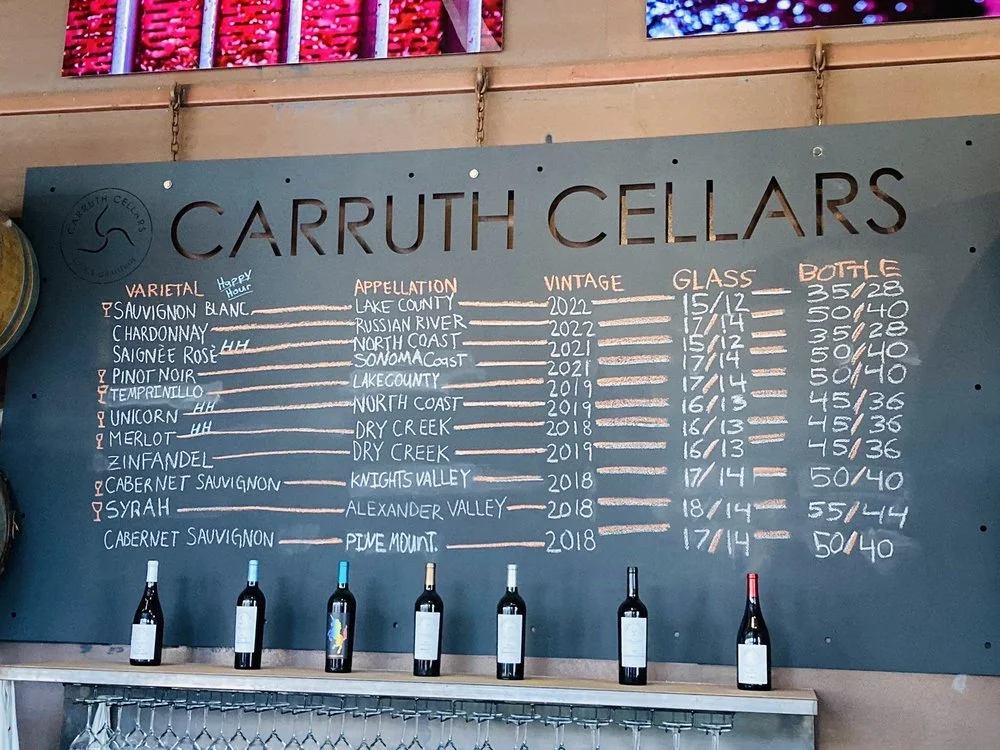 CARRUTH CELLARS
CARRUTH CELLARS
VARIETAL Happy Hour APPELLATION VINTAGE GLASS BOTTLE
SAUVIGNON BLANC LAKE COUNTY 2022 15/12 35/28
CHARDONNAY RUSSIAN RIVER 2022 17/14 50/40
SAIGNÈE ROSÈ HH NORTH COAST 2021 15/12 35/28
PINOT NOIR SONOMA Coast 2021 17/14 50/40
TEMPRINILLO LAKE COUNTY 2019 17/14 50/40
UNICORN HH NORTH COAST 2019 16/13 45/36
MERLOT HH DRY CREEK 2018 16/13 45/36
ZINFANDEL DRY CREEK 2019 16/13 45/36
CABERNET SAUVIGNON KNIGHTS VALLEY 2018 17/14 50/40
SYRAH ALEXANDER VALLEY 2018 18/14 55/44
CABERNET SAUVIGNON PINE MOUNT. 2018 17/14 50/40